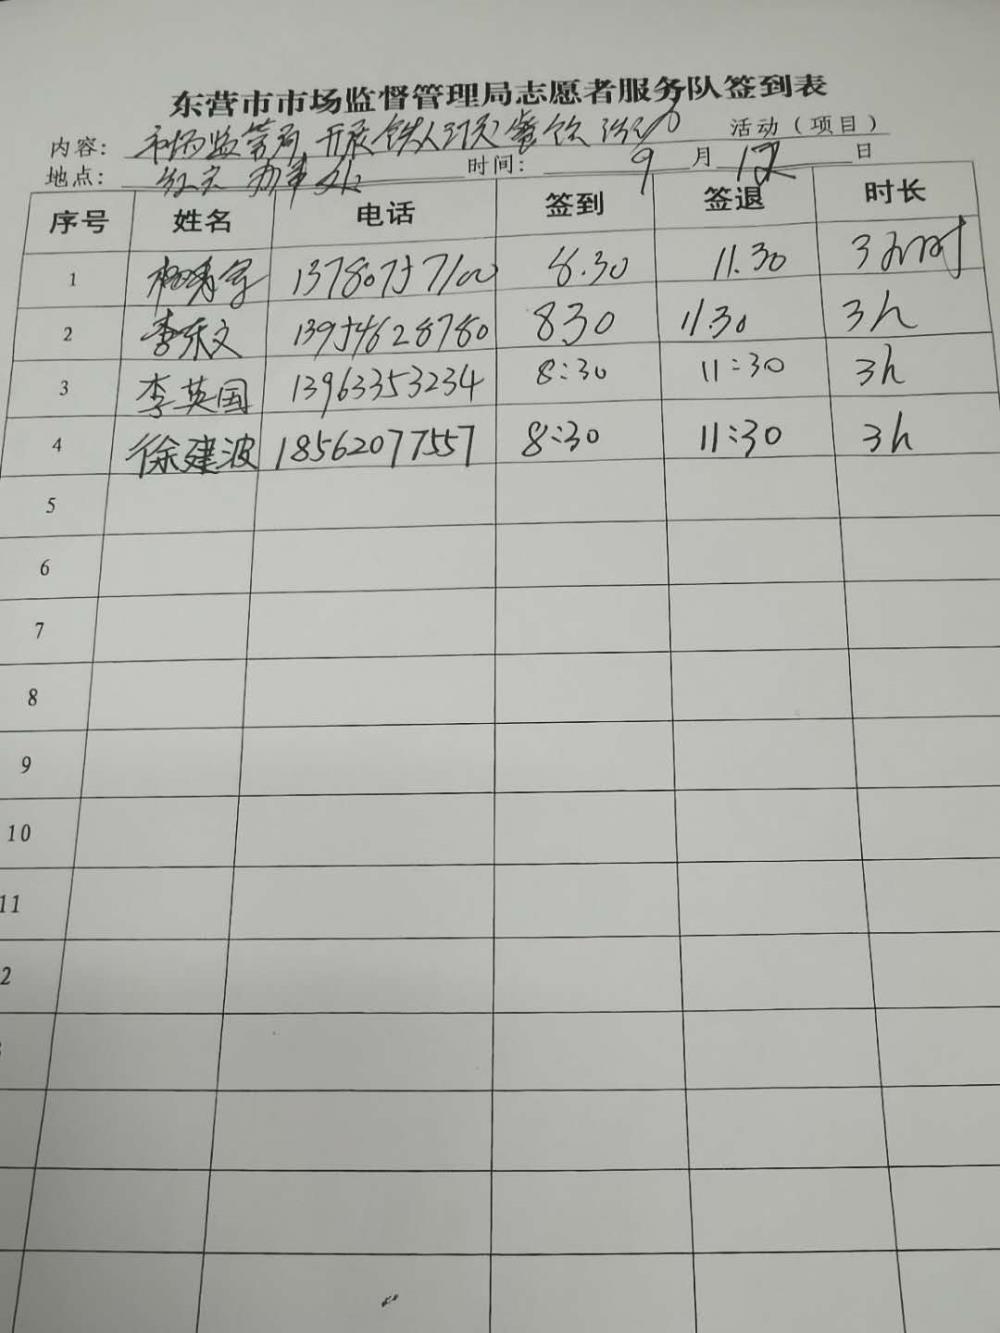 东营市市场监督管理局志愿者服务队签到表
内容: 市场监管局 开展 铁人 餐饮 活动(项目)
地点: 办事处 时间: 9 月 12 日
序号 姓名 电话 签到 签退 时长
1 13780757100 8.30 11.30 3小时
2 李东文 13954628780 830 11.30 3h
3 李英国 13963353234 8:30 11:30 3h
4 徐建波 18562077557 8:30 11:30 3h
5
6
7
8
9
10
11
2